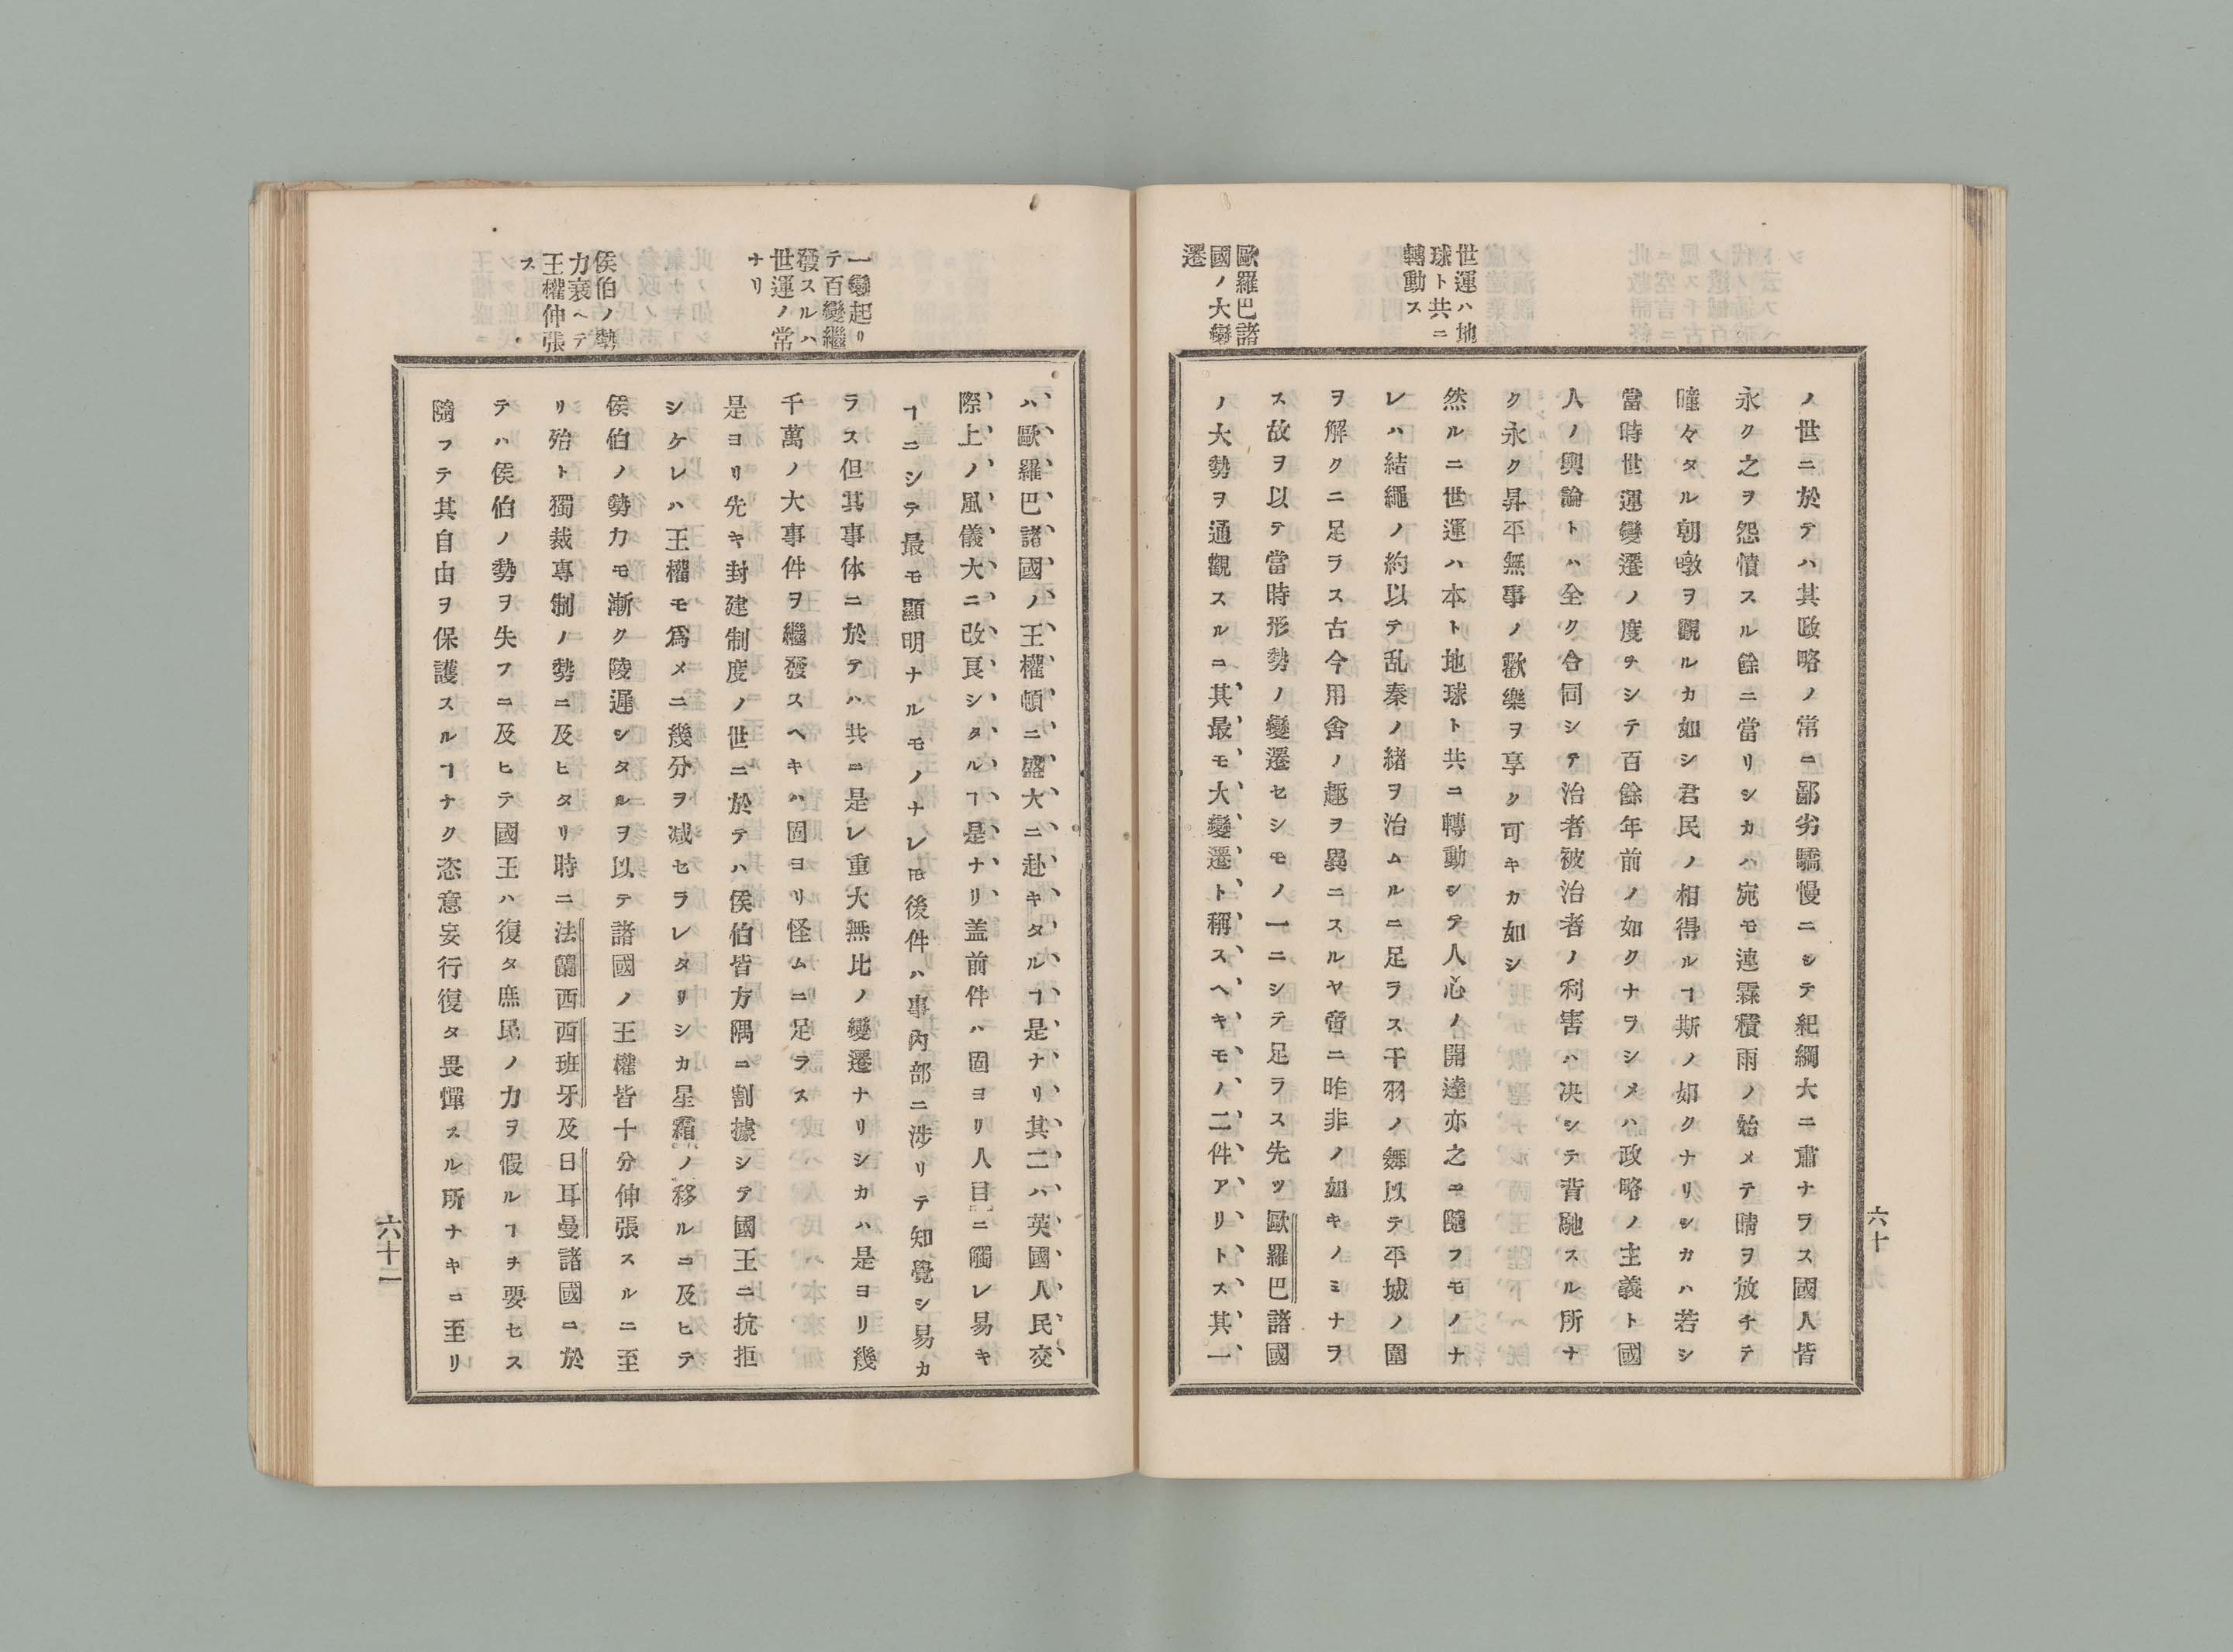 世運ハ地
球ト共ニ
轉動ス
歐羅巴諸
國ノ大變
遷
ノ世ニ於テハ其政略ノ常ニ鄙劣驕慢ニシテ紀綱大ニ肅ナラス國人皆
永ク之ヲ怨憤スル餘ニ當リシカハ宛モ連霖積雨ノ始メテ晴ヲ放チテ
曈々タル朝暾ヲ觀ルカ如シ君民ノ相得ルヿ斯ノ如クナリシカハ若シ
當時世運變遷ノ度ヲシテ百餘年前ノ如クナラシメハ政略ノ主義ト國
人ノ輿論トハ全ク合同シテ治者被治者ノ利害ハ决シテ背馳スル所ナ
ク永ク昇平無事ノ歡樂ヲ享ク可キカ如シ
然ルニ世運ハ本ト地球ト共ニ轉動シテ人心ノ開達亦之ニ隨フモノナ
レハ結繩ノ約以テ乱秦ノ緒ヲ治ムルニ足ラス干羽ノ舞以テ平城ノ圍
ヲ解クニ足ラス古今用舍ノ趣ヲ異ニスルヤ啻ニ昨非ノ如キノミナラ
ス故ヲ以テ當時形勢ノ變遷セシモノ一ニシテ足ラス先ツ歐羅巴諸國
ノ大勢ヲ通觀スルニ其最モ大變遷ト稱スヘキモノ二件アリトス其一
六十
一變起リ
テ百變繼
發スルハ
世運ノ常
ナリ
侯伯ノ勢
力衰ヘテ
王權伸張
ス
ハ歐羅巴諸國ノ王權頓ニ盛大ニ赴キタルヿ是ナリ其二ハ英國人民交
際上ノ風儀大ニ改良シタルヿ是ナリ盖前件ハ固ヨリ人目ニ觸レ易キ
ヿニシテ最モ顯明ナルモノナレ𪜈後件ハ事內部ニ涉リテ知覺シ易カ
ラス但其事体ニ於テハ共ニ是レ重大無比ノ變遷ナリシカハ是ヨリ幾
千萬ノ大事件ヲ繼發スヘキハ固ヨリ怪ムニ足ラス
是ヨリ先キ封建制度ノ世ニ於テハ侯伯皆方隅ニ割據シテ國王ニ抗拒
シケレハ王權モ爲メニ幾分ヲ减セラレタリシカ星霜ノ移ルニ及ヒテ
侯伯ノ勢力モ漸ク陵遲シタルヲ以テ諸國ノ王權皆十分伸張スルニ至
リ殆ト獨裁專制ノ勢ニ及ヒタリ時ニ法蘭西西班牙及日耳曼諸國ニ於
テハ侯伯ノ勢ヲ失フニ及ヒテ國王ハ復タ庶民ノ力ヲ假ルヿヲ要セス
隨フテ其自由ヲ保護スルヿナク恣意妄行復タ畏憚スル所ナキニ至リ
六十二